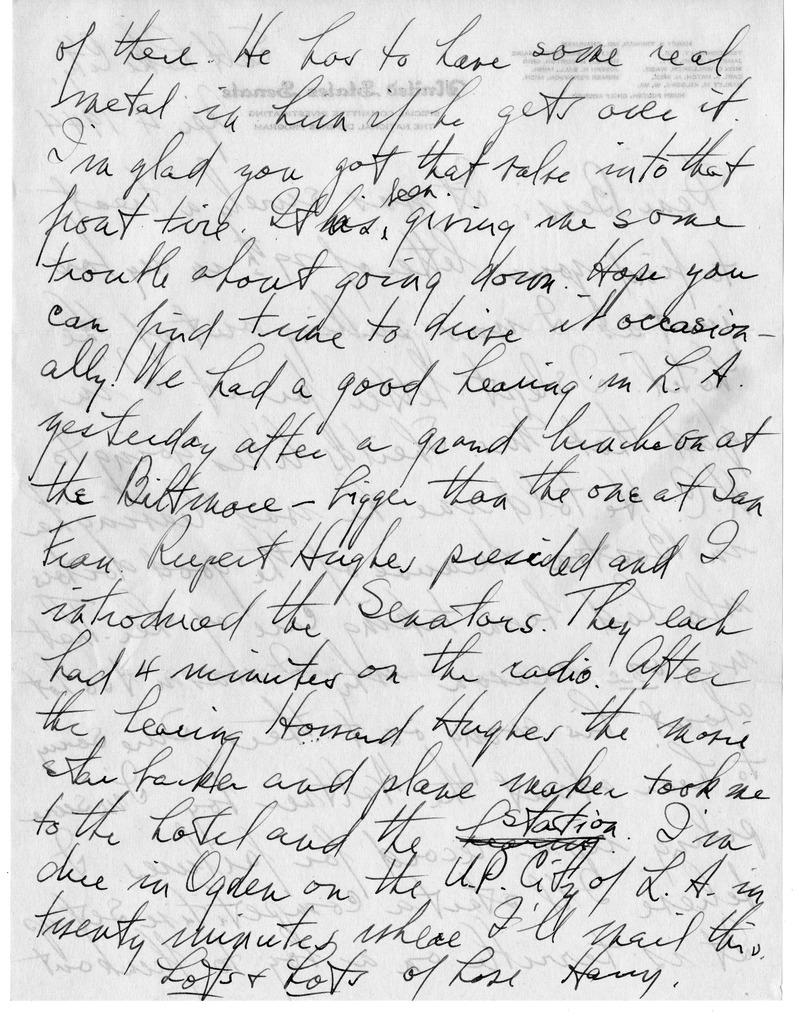 of there. He has to have some real
metal in him if he gets over it.
I'm glad you got that valve into that
front tire. It has been giving me some
trouble about going down. Hope you
can find time to drive it occasion-
ally. We had a good hearing in L. A.
yesterday after a grand luncheon at
the Biltmore - bigger than the one at San
Fran. Rupert Hughes presided and I
introduced the Senators. They each
had 4 minutes on the radio. After
the hearing Howard Hughes the movie
star backer and plane maker took me
to the hotel and the hearing station. I'm
due in Ogden on the U.P. City of L. A. in
twenty minutes where I'll mail this.
Lots & Lots of love Harry.